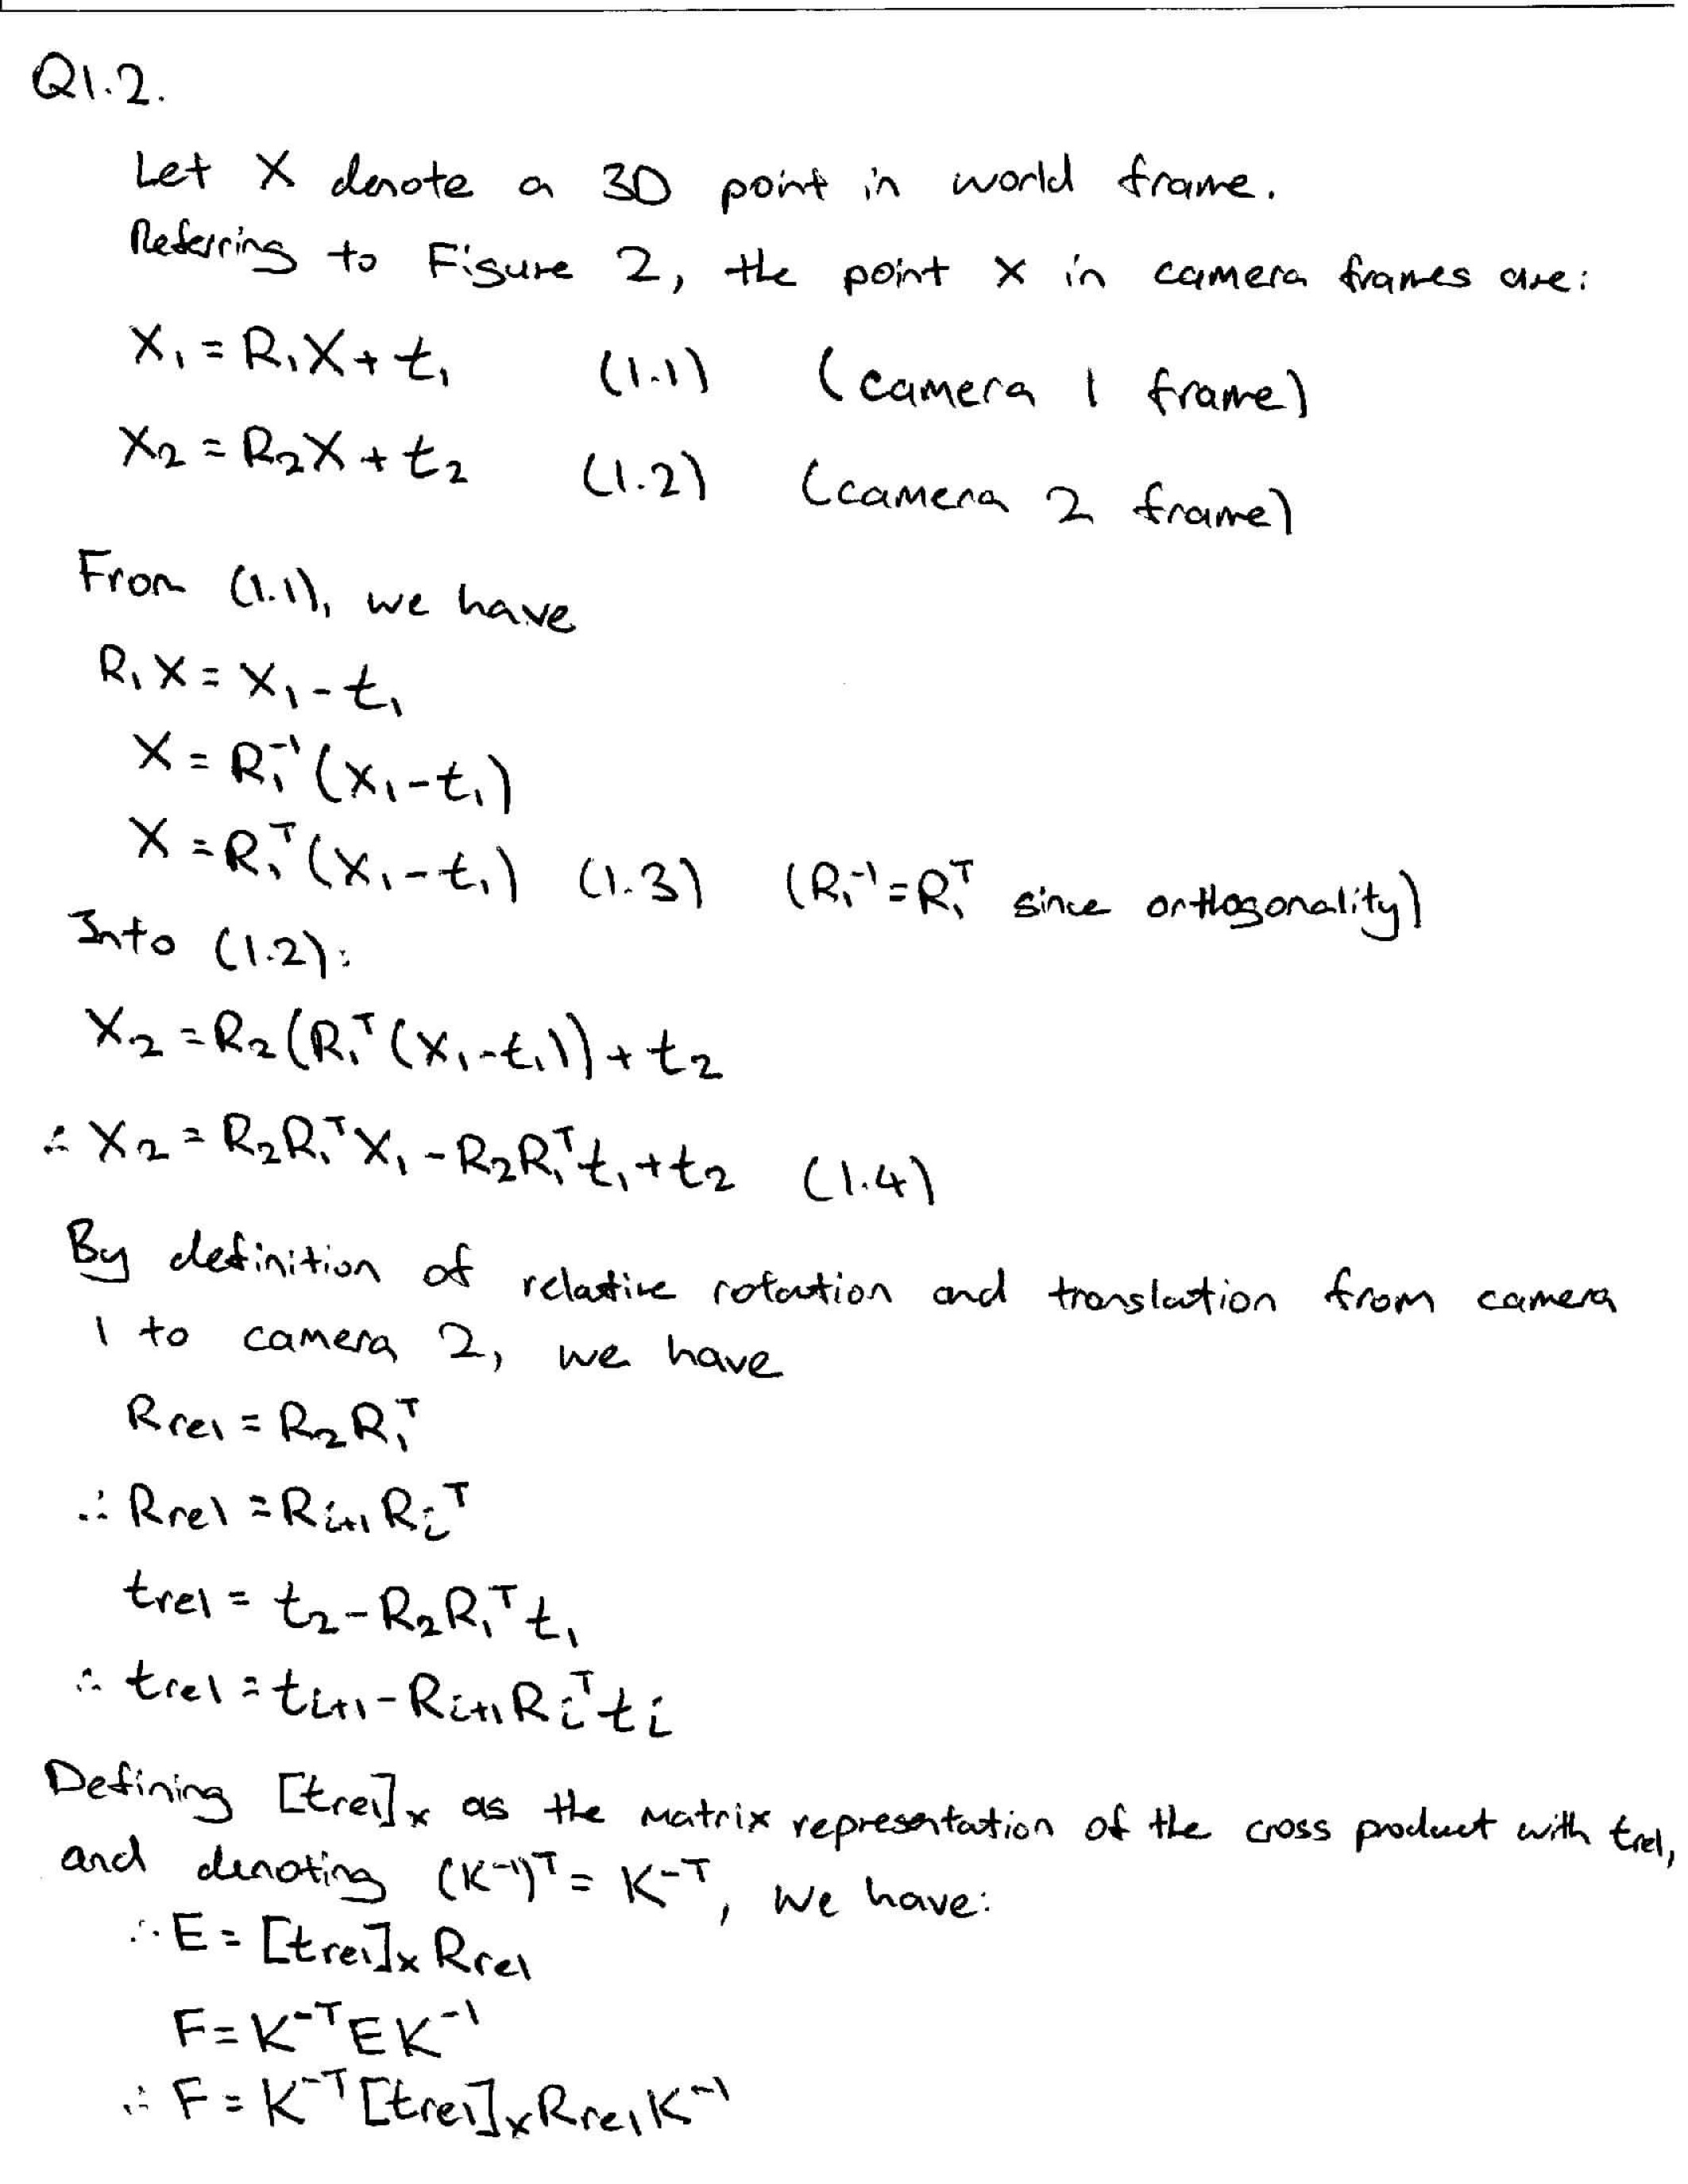 Q1.2.
Let X denote a 3D point in world frame.
Referring to Figure 2, the point X in camera frames are:
X₁ = R₁X + t₁ (1.1) (camera 1 frame)
X₂ = R₂X + t₂ (1.2) (camera 2 frame)
From (1.1), we have
R₁X = X₁ - t₁
X = R₁⁻¹(X₁ - t₁)
X = R₁ᵀ(X₁ - t₁) (1.3) (R₁⁻¹ = R₁ᵀ since orthogonality)
Into (1.2):
X₂ = R₂(R₁ᵀ(X₁ - t₁)) + t₂
∴ X₂ = R₂R₁ᵀX₁ - R₂R₁ᵀt₁ + t₂ (1.4)
By definition of relative rotation and translation from camera
1 to camera 2, we have
Rrel = R₂R₁ᵀ
∴ Rrel = Rᵢ₊₁Rᵢᵀ
trel = t₂ - R₂R₁ᵀt₁
∴ trel = tᵢ₊₁ - Rᵢ₊₁Rᵢᵀtᵢ
Defining [trel]ₓ as the matrix representation of the cross product with trel,
and denoting (K⁻¹)ᵀ = K⁻ᵀ, we have:
∴ E = [trel]ₓ Rrel
F = K⁻ᵀEK⁻¹
∴ F = K⁻ᵀ[trel]ₓRrelK⁻¹